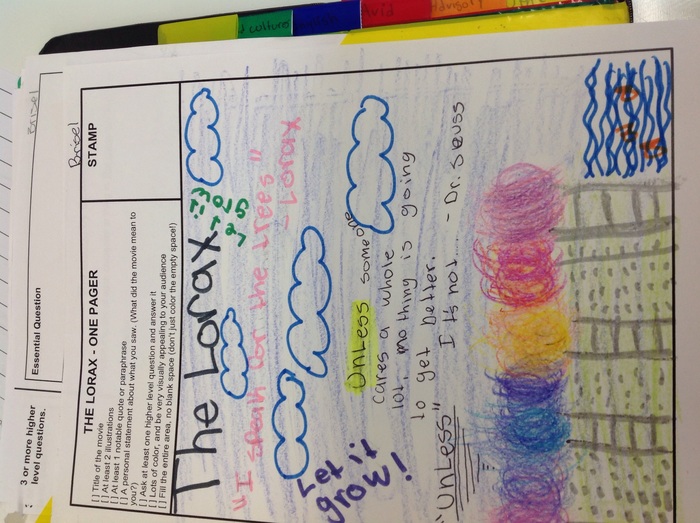 culture
English
Avid
Advisory
3 or more higher
level questions.
Essential Question
Brisel
Brisel
STAMP
THE LORAX - ONE PAGER
[ ] Title of the movie
[ ] At least 2 illustrations
[ ] At least 1 notable quote or paraphrase
[ ] A personal statement about what you saw. (What did the movie mean to
you?)
[ ] Ask at least one higher level question and answer it
[ ] Lots of color, and be very visually appealing to your audience
[ ] Fill the entire area, no blank space (don't just color the empty space!)
The Lorax
"I speak for the trees"
- Lorax
UNLESS someone
cares a whole
lot, nothing is going
to get better.
It's not. - Dr. Seuss
"UNLESS"
Let it
grow!